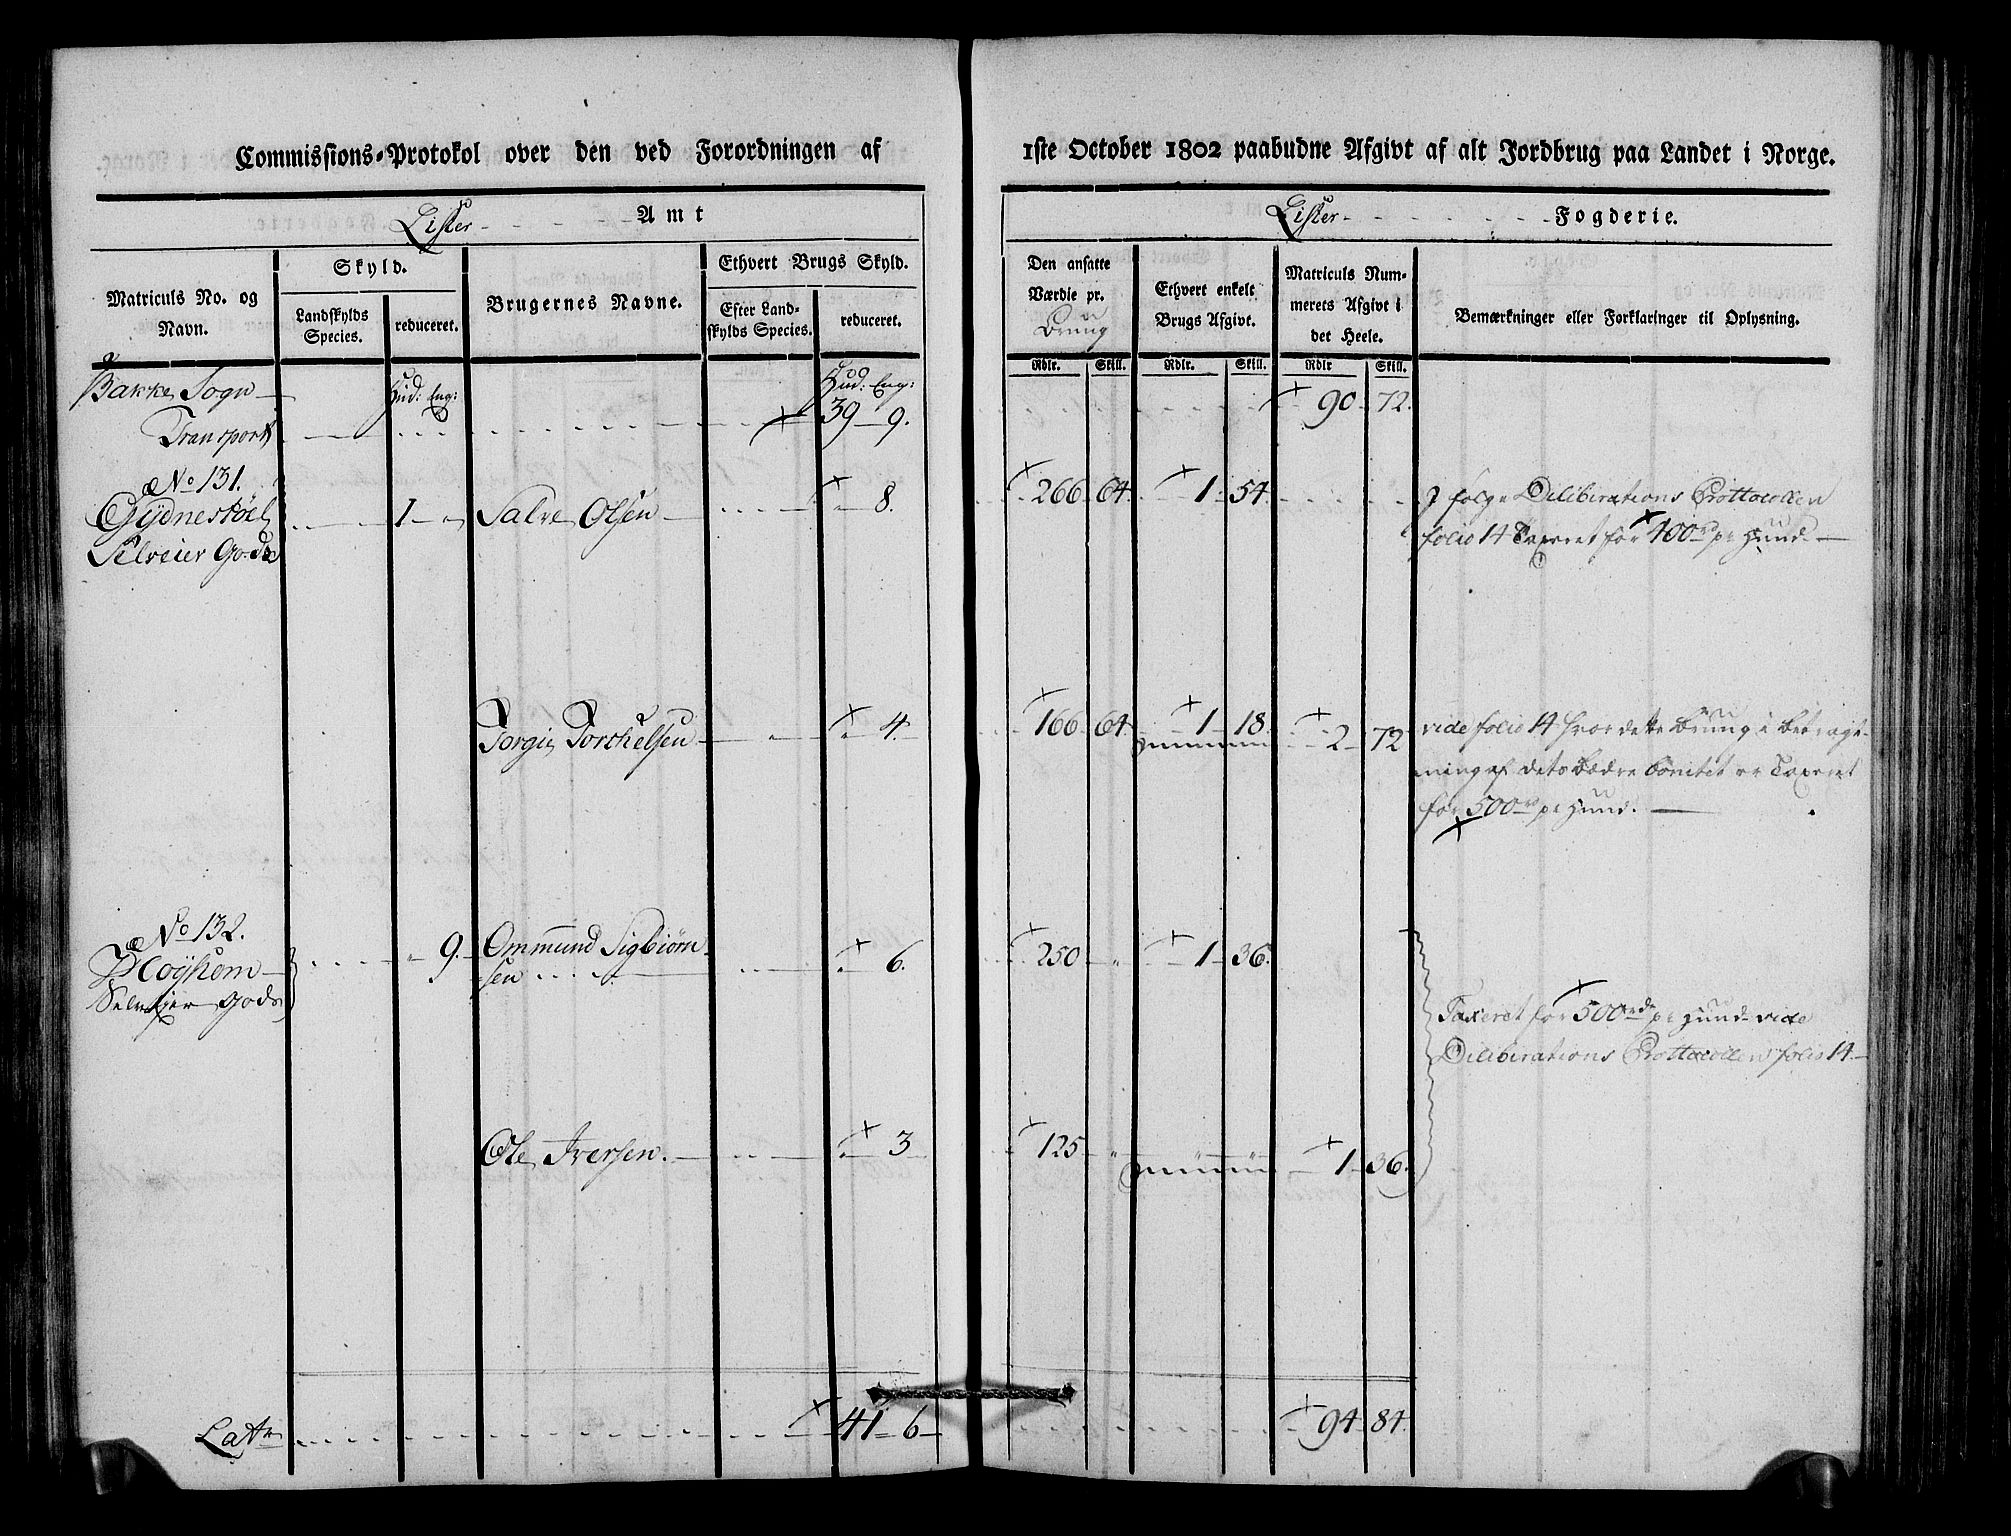 Commissions-Protokol over den ved Forordningen af
Lister - - - - - Amt
Matriculs No. og Navn.
Skyld.
Landskylds Species.
reduceret.
Brugernes Navne.
Ethvert Brugs Skyld.
Efter Landskylds Species.
reduceret.
Bakke Sogn Hud: Eng: Hud: Eng:
Transport + 39 9.
No 131.
Gydnestöel 1 " Salve Olsen + " 8.
Selveier Gods
Torgie Torchelsen + " 4.
No 132.
" 9. Ommund Sigbiörn
Selvejer Gods -sen + " 6.
Ole Iversen. + " 3
Lat + 41 6
1ste October 1802 paabudne Afgivt af alt Jordbrug paa Landet i Norge.
Lister - - - - - Fogderie.
Den ansatte Værdie pr.
Brug
Rdlr. Skill.
Ethvert enkelt Brugs Afgivt.
Rdlr. Skill.
Matriculs Nummerets Afgivt i det Heele.
Rdlr Skill.
Bemærkninger eller Forklaringer til Oplysning.
+ 90 72.
+ 266 64. + 1 54. J følge Diliberations Prottocollen
folio 14 Taxeret for + 400 rd pr Hund.
+ 166 64 + 1 18. + 2 72 vide folio 14 hvor dette Brug i Betragt-
ning af dets bædre bonitet er Taxeret
for 500 rd pr Hund.
+
+ 250 " + 1 36.
Taxeret for + 500 rdr pr Hund vide
Diliberations Prottocollen folio 14
+ 125 " + 1 36.
+ 94 84.